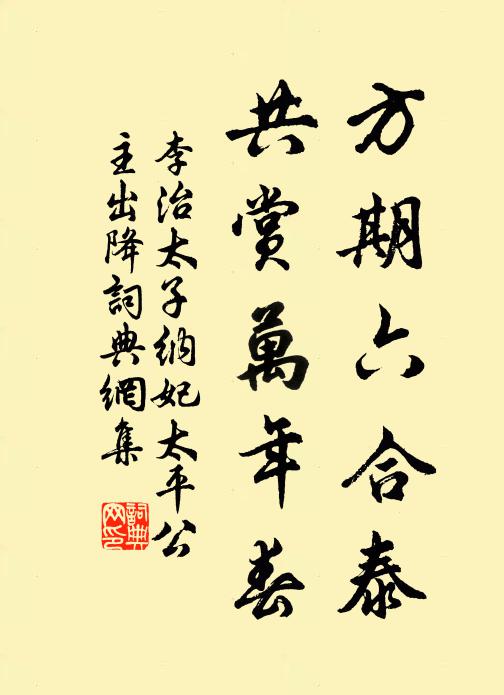 方期六合泰
共賞萬年春
李治太子納妃太平公
主出降詞典網集
詞典
网印